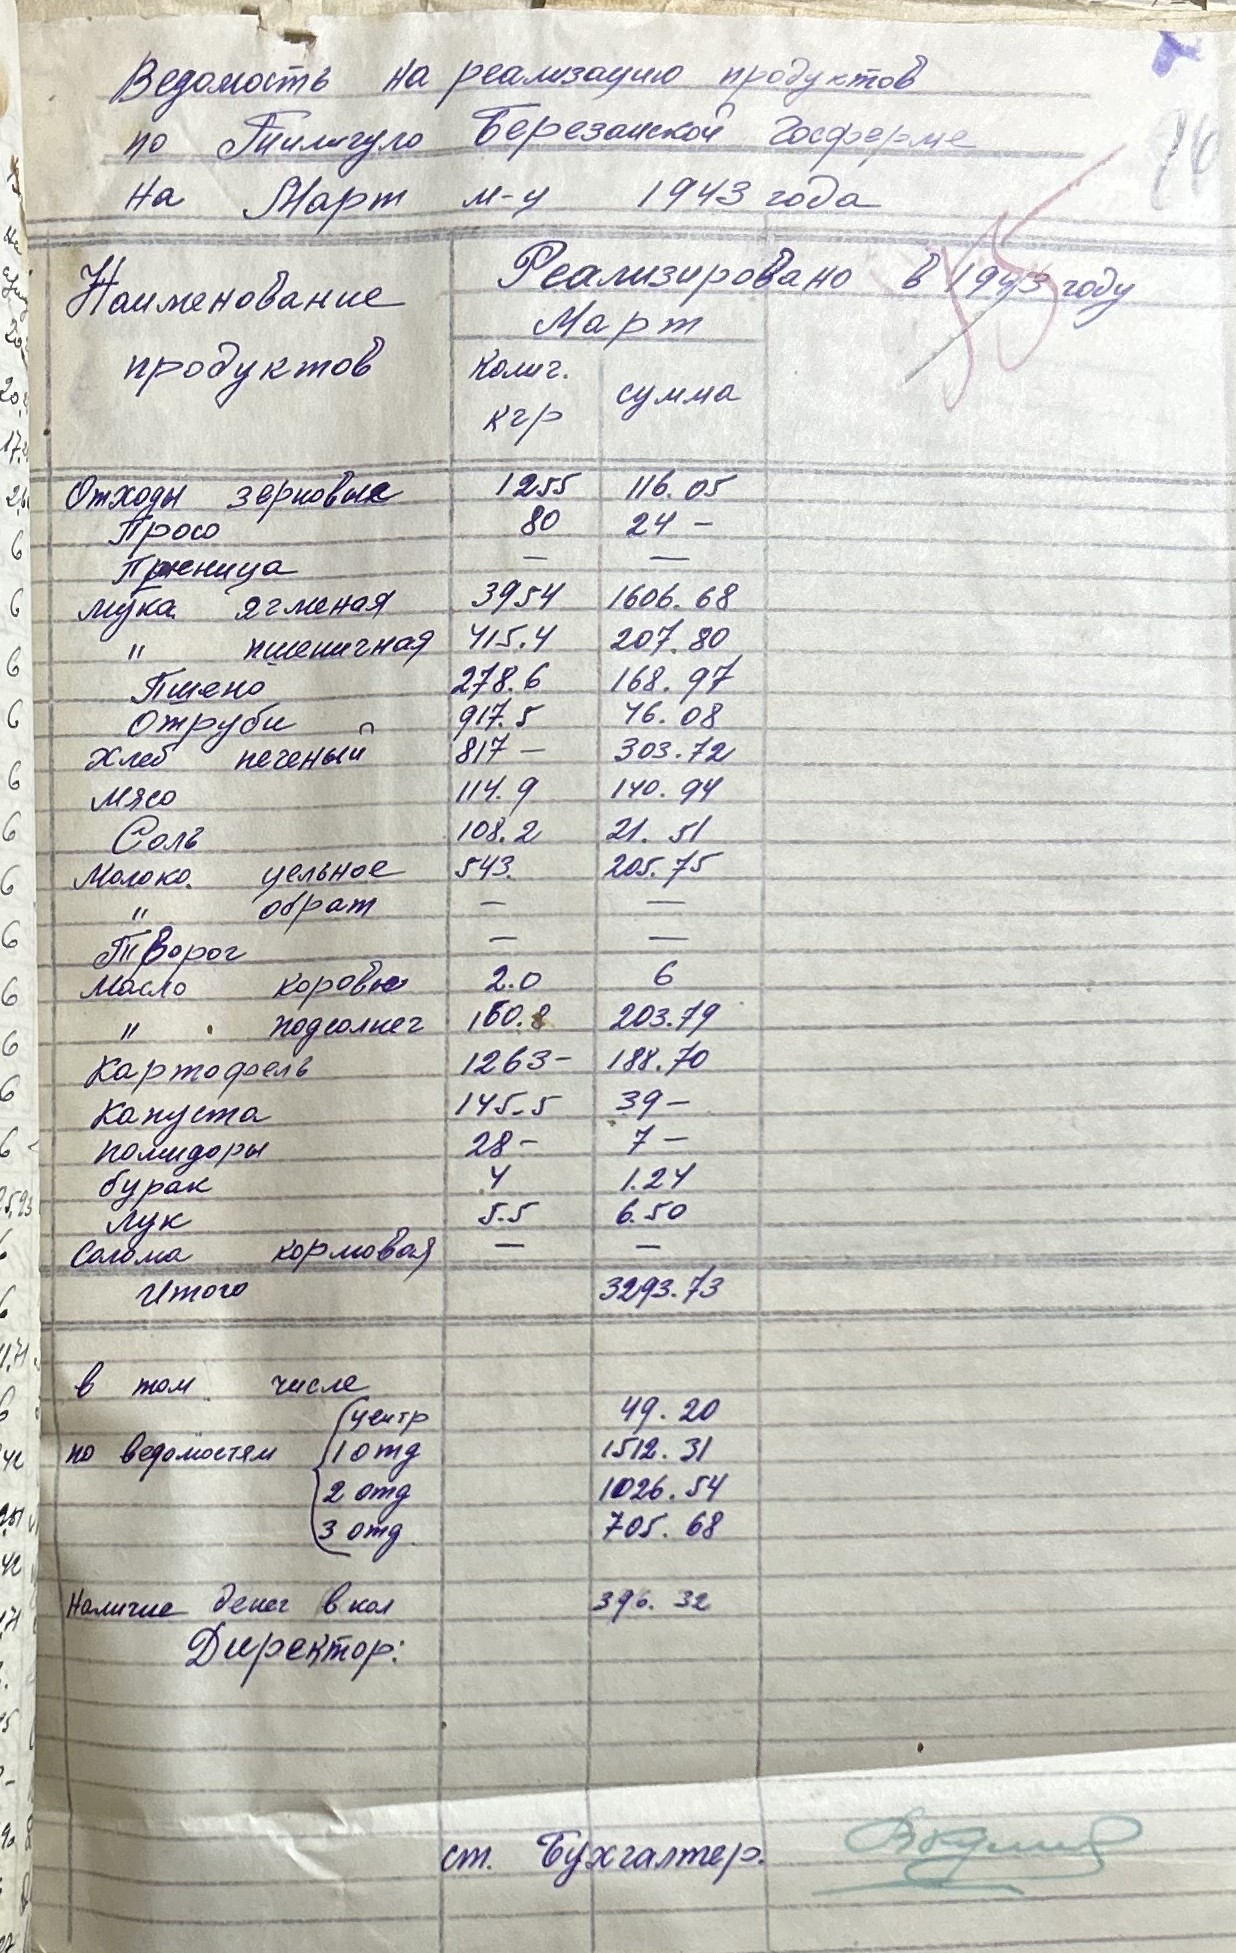 Ведомость на реализацию продуктов
по Тилигуло Березанской Госферме
на Март м-ц 1943 года
Наименование продуктов
Реализировано в 1943 году
Март
колич. кгр
сумма
Отходы зерновые 1255 116.05
Просо 80 24 -
Пшеница — —
Мука ячменая 3954 1606.68
" пшеничная 415.4 207.80
Пшено 278.6 168.97
Отруби 917.5 46.08
Хлеб печеный 817 - 303.72
Мясо 114.9 140.94
Соль 108.2 21.51
Молоко цельное 543. 205.75
" обрат — —
Творог — —
Масло коровье 2.0 6
" подсолнеч 160.8 203.79
Картофель 1263 - 188.70
Капуста 145.5 39 -
помидоры 28 - 7 -
бурак 4 1.24
Лук 5.5 6.50
Солома кормовая — —
Итого 3293.73
в том числе
центр 49.20
по ведомостям 1 отд 1512.31
2 отд 1026.54
3 отд 705.68
Наличие денег в кол 396.32
Директор:
ст. Бухгалтер.